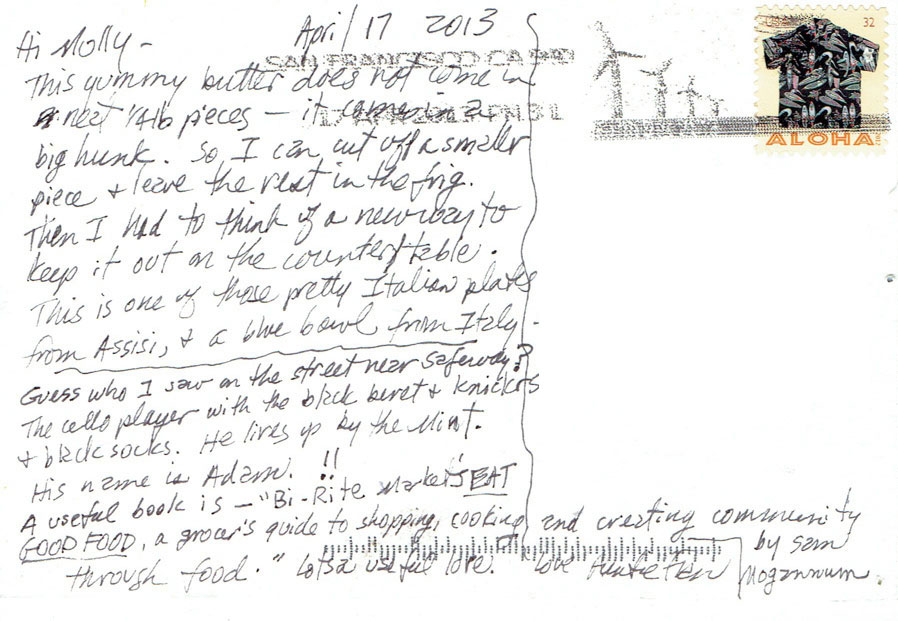 April 17 2013
Hi Molly -
SAN FRANCISCO CA
32
ALOHA
This yummy butter does not come in
neat 1/4 lb pieces - it comes in a
big hunk. So, I can cut off a smaller
piece & leave the rest in the frig.
Then I had to think of a new way to
keep it out on the counter/table.
This is one of those pretty Italian plates
from Assisi, & a blue bowl from Italy -
Guess who I saw on the street near Safeway?
The cello player with the black beret & knickers
& black socks. He lives up by the Mint.
His name is Adam. !!
A useful book is - "Bi-Rite Market's EAT
GOOD FOOD, a grocer's guide to shopping, cooking, and creating community
through food." Lotsa useful lore. Love Auntie
by Sam
Mogannam.